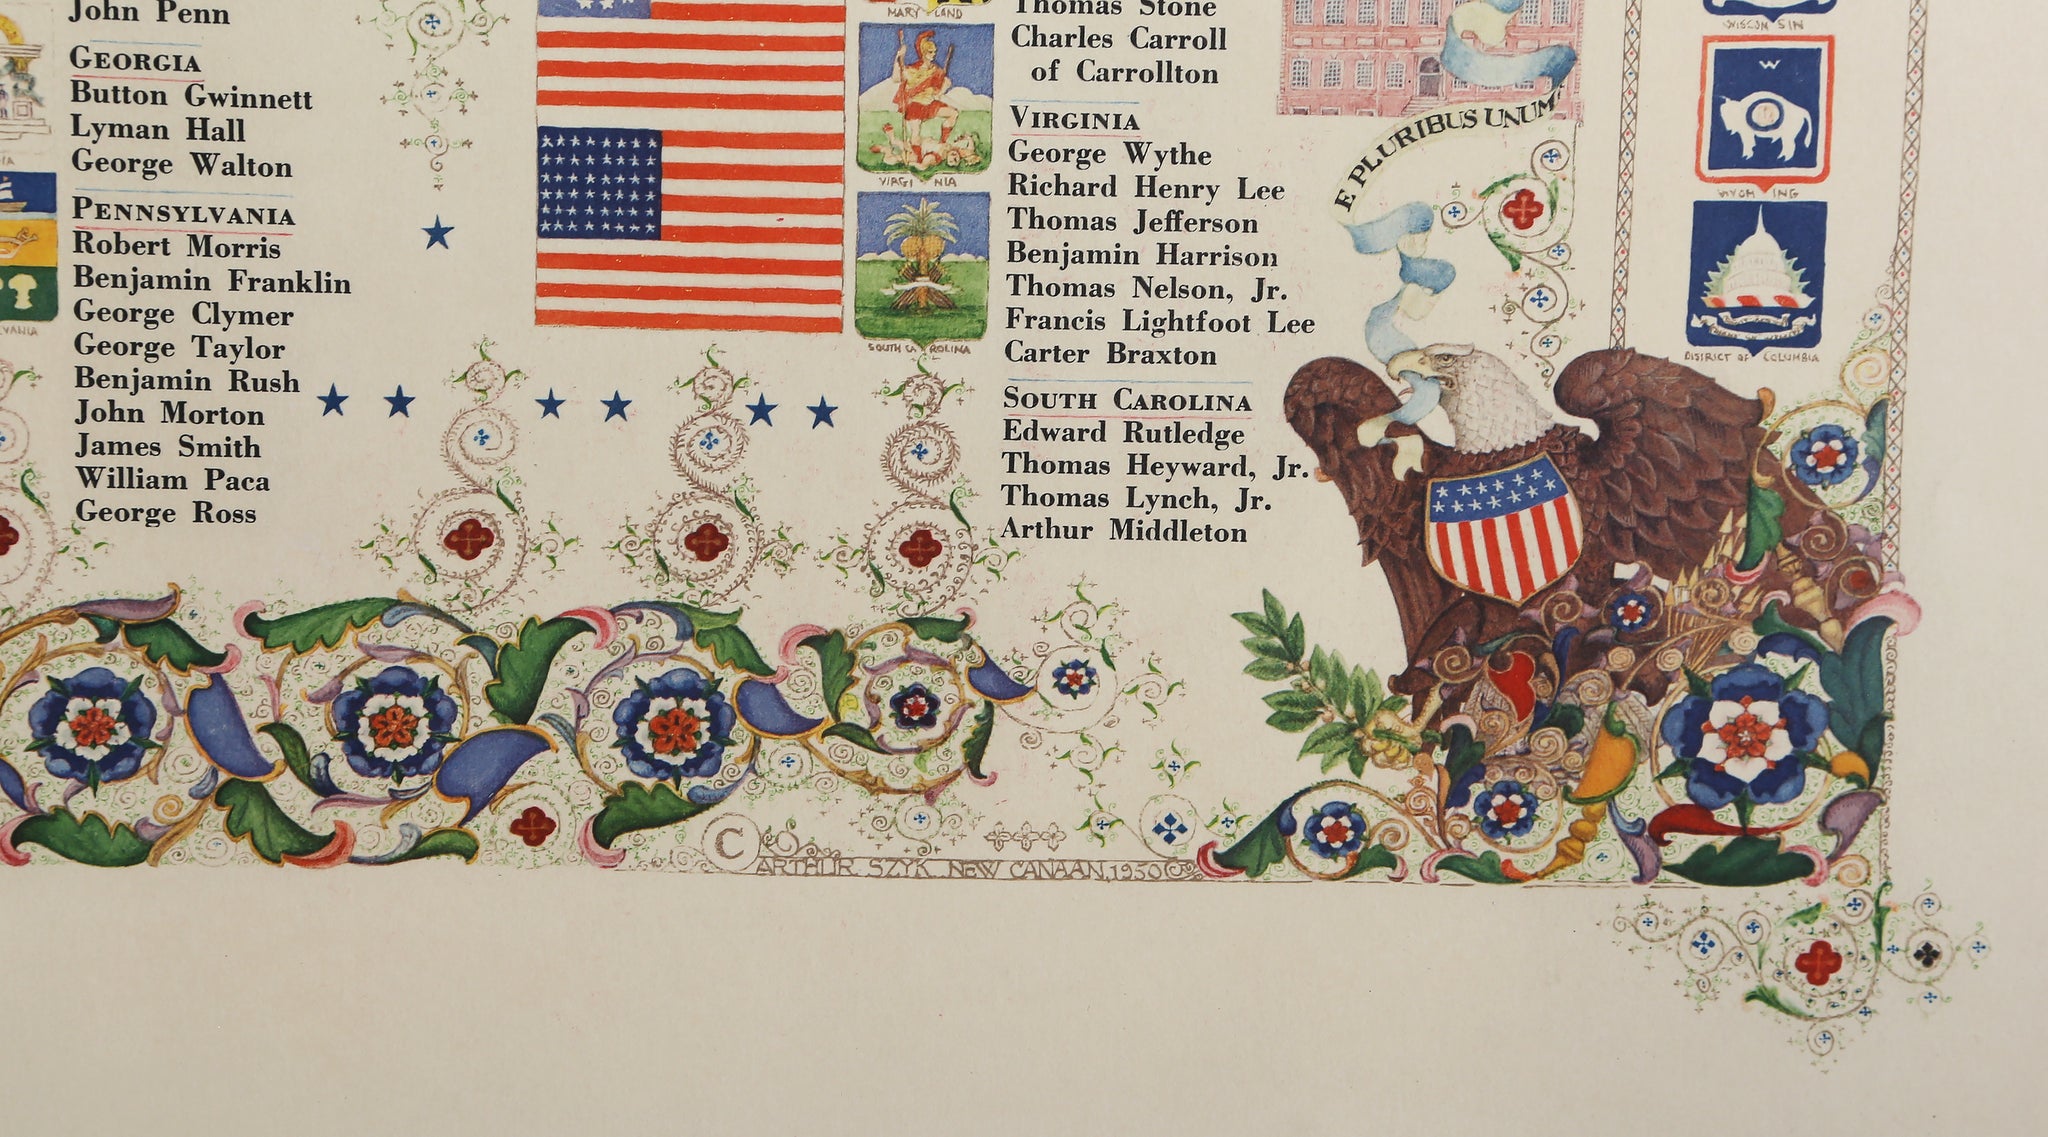 John Penn
GEORGIA
Button Gwinnett
Lyman Hall
George Walton
PENNSYLVANIA
Robert Morris
Benjamin Franklin
George Clymer
George Taylor
Benjamin Rush
John Morton
James Smith
William Paca
George Ross
MARY LAND
VIRGI NIA
SOUTH CA ROLINA
Thomas Stone
Charles Carroll
of Carrollton
VIRGINIA
George Wythe
Richard Henry Lee
Thomas Jefferson
Benjamin Harrison
Thomas Nelson, Jr.
Francis Lightfoot Lee
Carter Braxton
SOUTH CAROLINA
Edward Rutledge
Thomas Heyward, Jr.
Thomas Lynch, Jr.
Arthur Middleton
E PLURIBUS UNUM
WISCON SIN
W
WYOM ING
DISTRICT OF COLUMBIA
C
ARTHUR SZYK NEW CANAAN, 1950